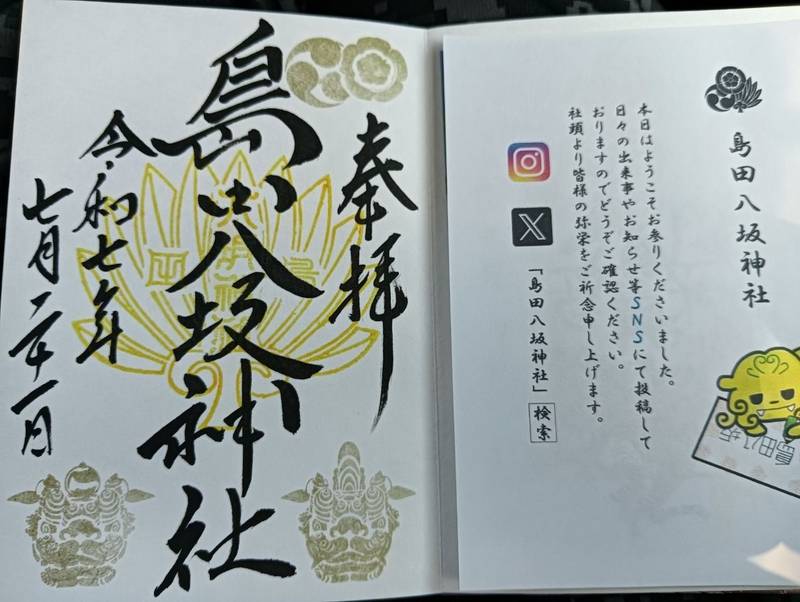 奉拝
島田八坂神社
令和七年
七月二十一日
島田八坂神社
本日はようこそお参りくださいました。
日々の出来事やお知らせ等SNSにて投稿して
おりますのでどうぞご確認ください。
社頭より皆様の弥栄をご祈念申し上げます。
「島田八坂神社」検索
島田八坂